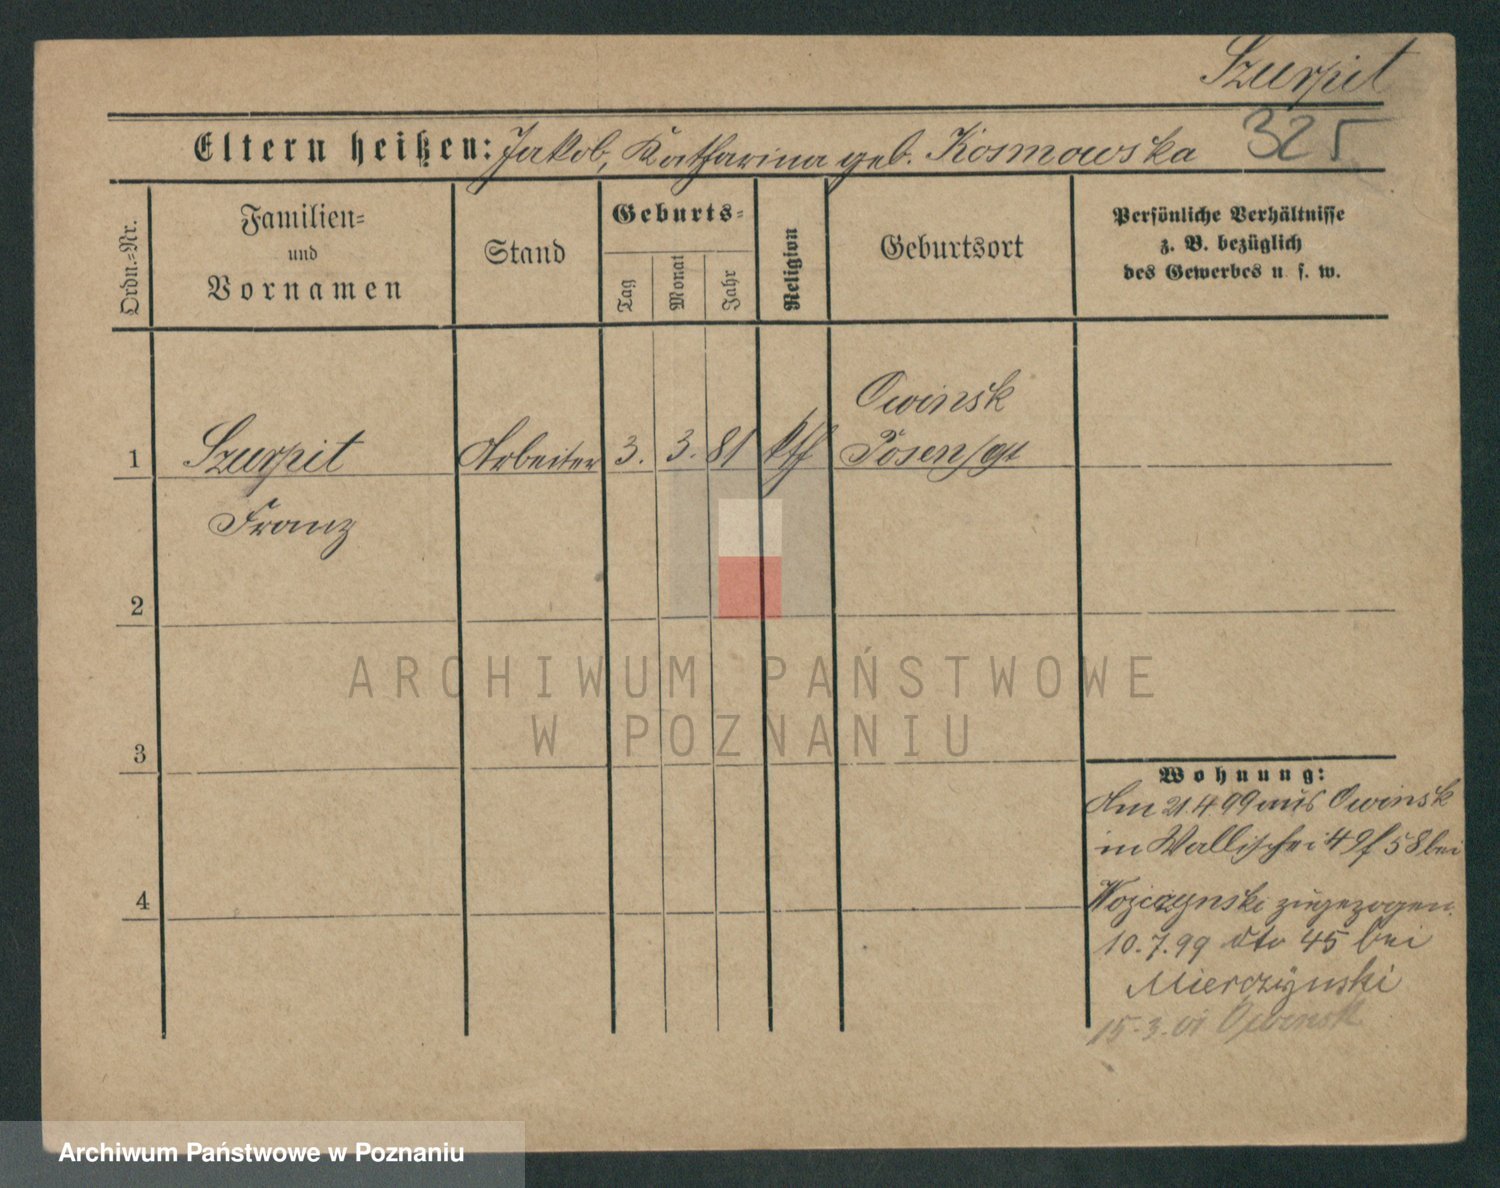 Szurpit
325
Eltern heißen: Jakob, Katharina geb. Kosmowska
Ordn.-Nr.
Familien-
und
Vornamen
Stand
Geburts-
Tag
Monat
Jahr
Religion
Geburtsort
Persönliche Verhältnisse
z. B. bezüglich
des Gewerbes u. s. w.
Owinsk
1 Szurpit Arbeiter 3. 3. 81 kth Posen/gt
Franz
2
ARCHIWUM PAŃSTWOWE
W POZNANIU
3
Wohnung:
Am 21.4.99 aus Owinsk
in Wallischei 58 bei
4
zugezogen.
10.7.99 dto 45 bei
Mierczynski
15.3.01 Owinsk
Archiwum Państwowe w Poznaniu